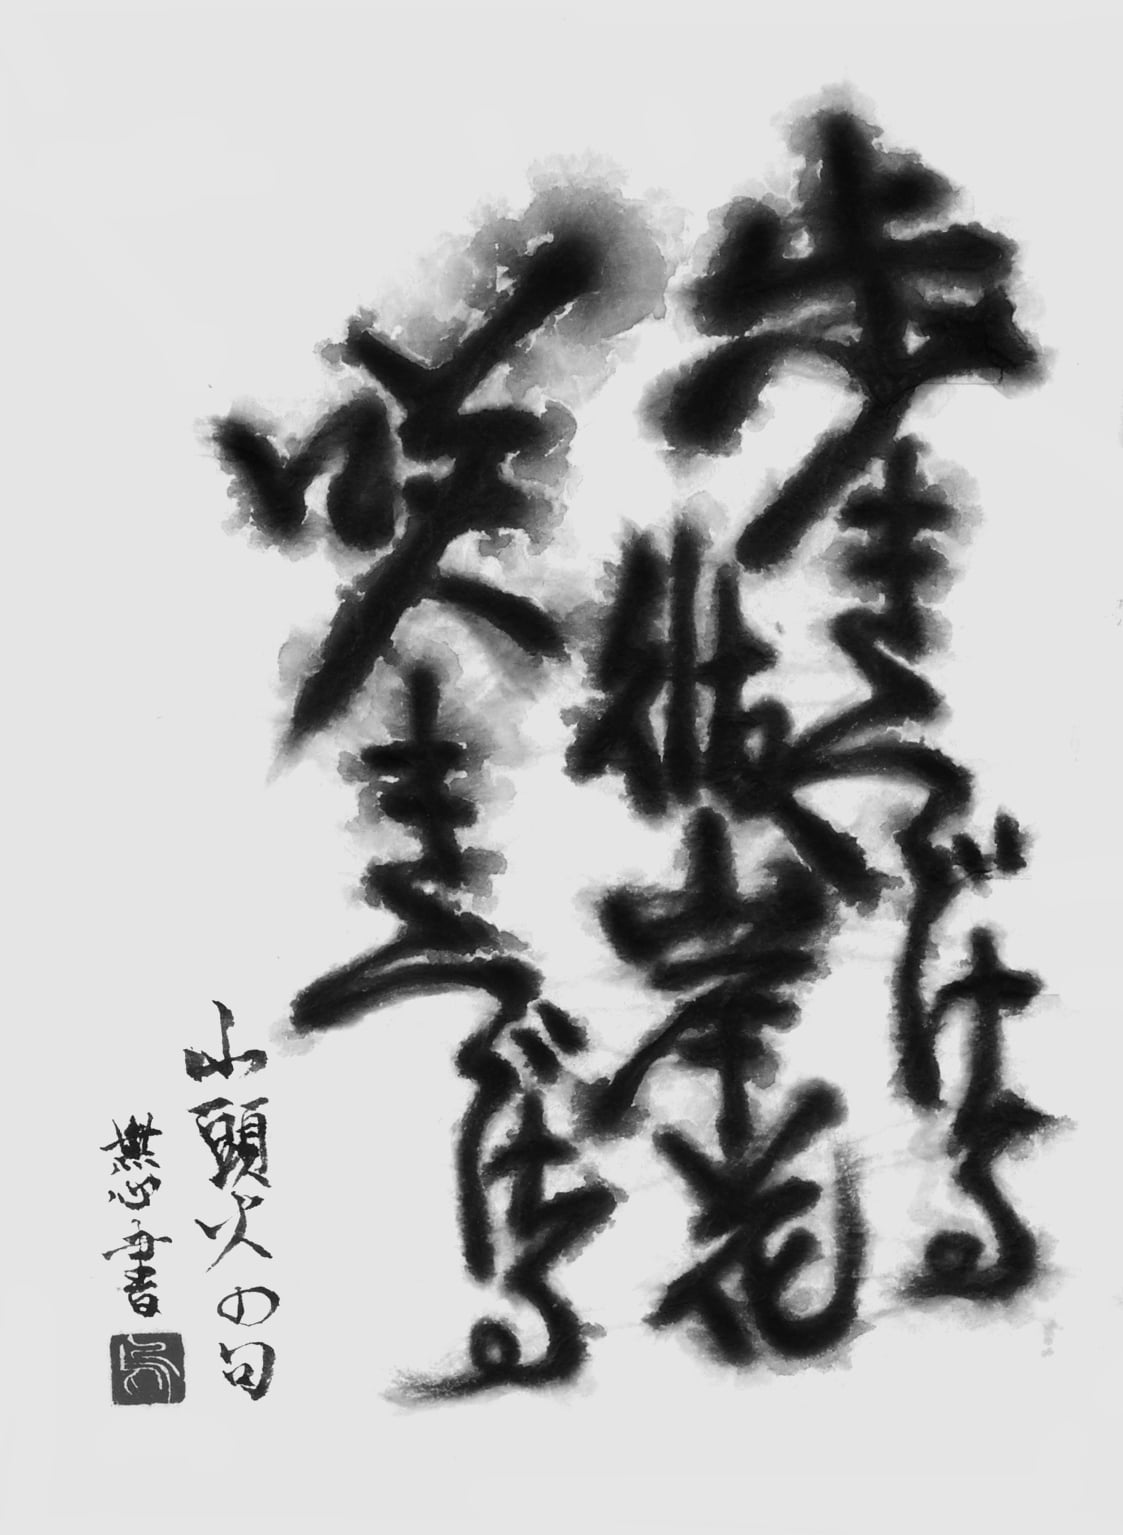 歩きつづける
彼岸花
咲きつづける
山頭火の句
書